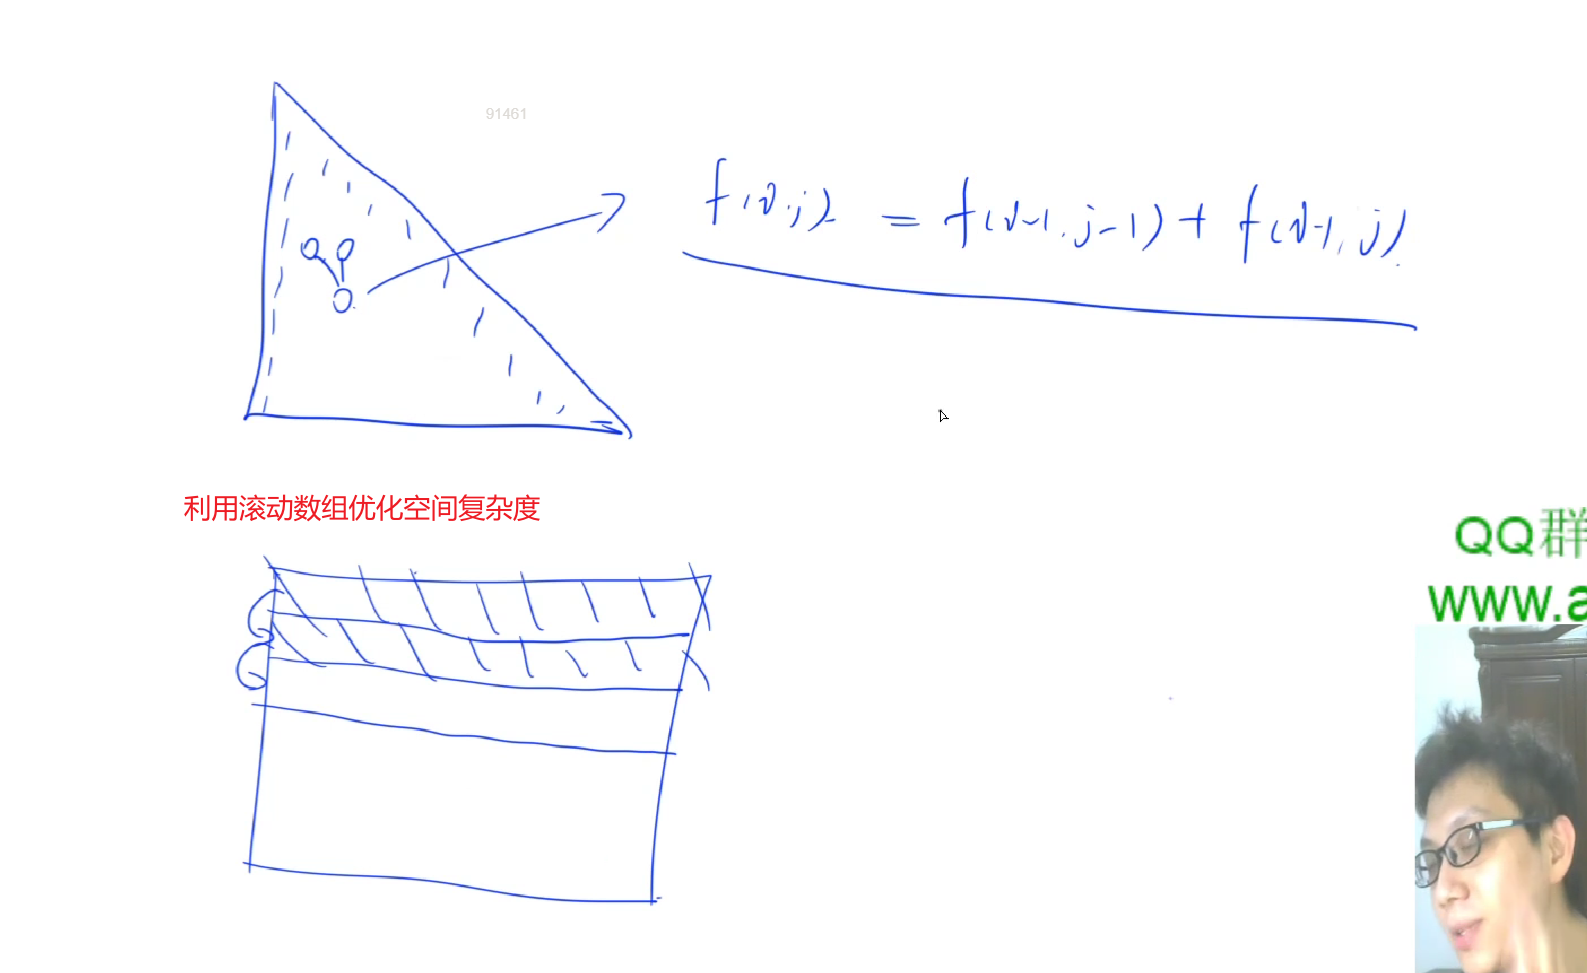 91461
f(i,j) = f(i-1,j-1) + f(i-1,j)
利用滚动数组优化空间复杂度
QQ群
www.a